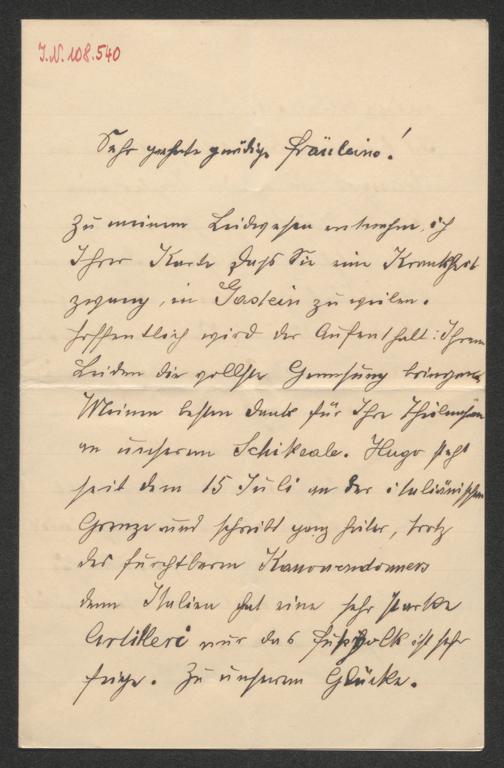 J.N. 108.540
Sehr geehrte gnädige Fräuleins!
Zu meinem Leidwesen entnehm, ich
Ihrer Karte daß Sie eine Krankheit
zwang, in Gastein zu weilen.
Hoffentlich wird der Aufenthalt: Ihrem
Leiden die vollste Genesung bringen
Meinen besten Dank für Ihre Theilnahme
an unserem Schiksale. Hugo steht
seit dem 15 Juli an der italiänischen
Grenze und schreibt ganz heiter, trotz
des furchtbaren Kanonendonners
denn Italien hat eine sehr starke
Artilleri nur das Fußvolk ist sehr
feige. Zu unserem Glücke.